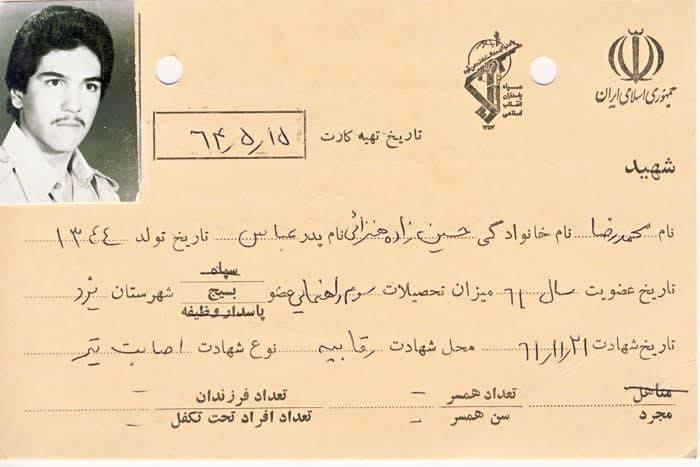 جمهوری اسلامی ایران
سپاه پاسداران انقلاب اسلامی
تاریخ تهیه کارت ۶۴/۵/۱۵
شهید
نام محمدرضا نام خانوادگی حسین زاده نام پدر عباس تاریخ تولد ۱۳۴۴
تاریخ عضویت سال ۶۱ میزان تحصیلات سوم راهنمایی عضو سپاه بسیج پاسدار وظیفه شهرستان یزد
تاریخ شهادت ۶۱/۱۱/۲۱ محل شهادت رقابیه نوع شهادت اصابت تیر
متاهل مجرد تعداد همسر – سن همسر – تعداد فرزندان – تعداد افراد تحت تکفل –